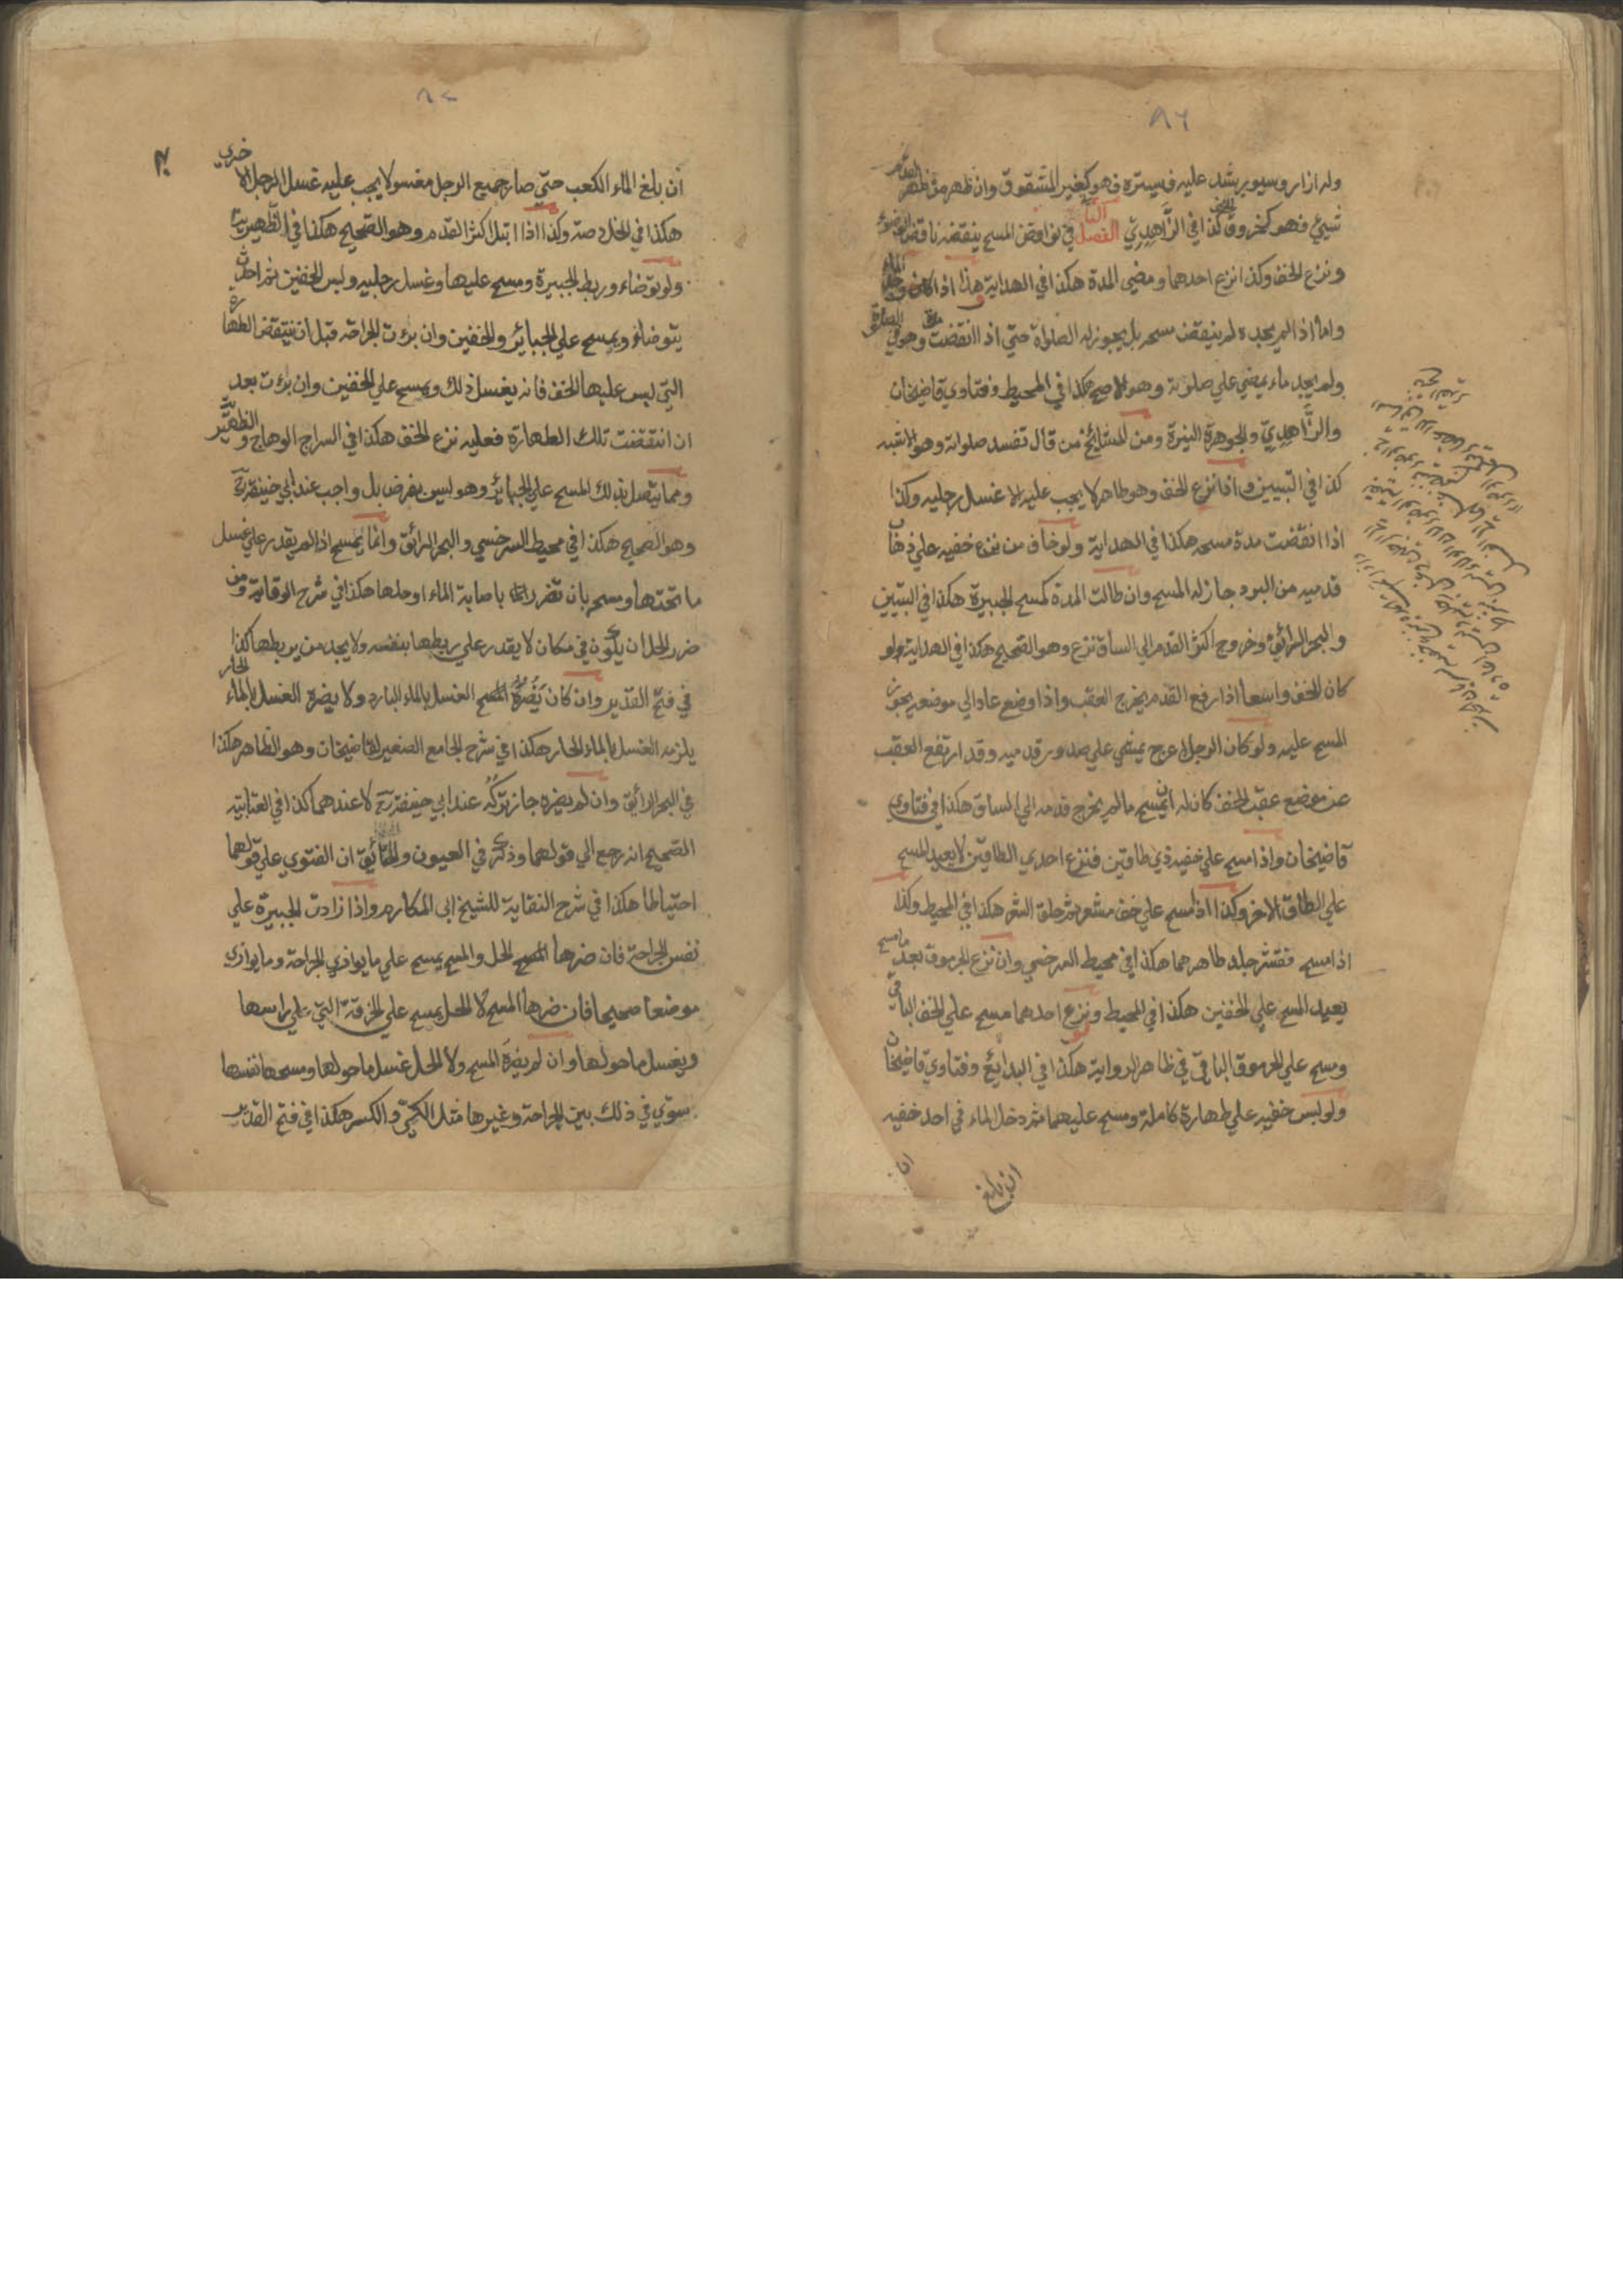 ٨٦
وله ازار وسيور يشد عليه فيستره فهو كغير المشقوق وان ظهر من ظهر القدم
شيئ فهو كخروق الخف كذا في الزَّاهِدِيّ الفصل الثا في نواقض المسح ينقضه ناقض الوضوء
ونزع الخف وكذ انزع احدهما ومضي المدة هكذا في الهداية هذا اذا كان وجد الماء
واما اذا لم يجده لم ينقض مسحه بل يجوز له الصلواة حتي اذا انقضت مدة وهو في الصلوة
ولم يجد ماء يمضي علي صلوته وهو الاصح هكذا في المحيط وفتاوي قاضيخان
والزَّاهِدِيّ والجوهرة النيرة ومن المشائخ من قال تفسد صلواته وهو الاشبه
كذا في التبيين اذا نزع الخف وهو طاهر لا يجب عليه الا غسل رجليه وكذا
اذا انقضت مدة مسحه هكذا في الهداية ولو خاف من نزع خفيه علي ذهاب
قدميه من البرد جاز له المسح وان طالت المدة كمسح الجبيرة هكذا في التبيين
والبحر الرائق وخروج اكثر القدم الي الساق نزع وهو الصحيح هكذا في الهداية ولو
كان الخف واسعا اذا رفع القدم يخرج العقب واذا وضع عاد الي موضعه يجوز
المسح عليه ولو كان الرجل اعرج يمشي علي صدور قدميه وقد ارتفع العقب
عن موضع عقب الخف كان له ان يمسح ما لم يخرج قدمه الي الساق هكذا في فتاوي
قاضيخان واذا مسح علي خفيه ذي طاقين فنزع احدي الطاقين لا يعيد المسح
علي الطاق الاخر وكذا اذا مسح علي خف مشعر ثم حلق الشعر هكذا في المحيط وكذا
اذا مسح فقشر جلد ظاهرهما هكذا في محيط السرخسي وان نزع الجرموق بعد ما مسح
يعيد المسح علي الخفين هكذا في المحيط ونزع احدهما مسح علي الخف البادي
ومسح علي الجرموق الباقي في ظاهر الرواية هكذا في البدائع وفتاوي قاضيخان
ولو لبس خفيه علي طهارة كاملة ومسح عليهما ثم دخل الماء في احد خفيه
ان بلغ
٨٧
ان بلغ الماء الكعب حتي صار جميع الرجل مغسولا يجب عليه غسل الرجل الاخري
هكذا في الخلاصة وكذا اذا ابتل اكثر القدم وهو الصحيح هكذا في الظهيرية
ولو توضاء وربط الجبيرة ومسح عليها وغسل رجليه ولبس الخفين ثم احدث
يتوضاء ويمسح علي الجبائر والخفين وان برءت الجراحة قبل ان ينتقض الطهارة
التي لبس عليها الخف فانه يغسل ذلك ويمسح علي الخفين وان برءت بعد
ان انتقضت تلك الطهارة فعليه نزع الخف هكذا في السراج الوهاج و الظهير
ومما يتصل بذلك المسح علي الجبائر وهو ليس بفرض بل واجب عند ابي حنيفة رح
وهو الصحيح هكذا في محيط السرخسي والبحر الرائق وانما يمسح اذا لم يقدر علي غسل
ما تحتها ومسحه بان تضرر باصابة الماء او حلها هكذا في شرح الوقاية ومن
ضرر الحل ان يكون في مكان لا يقدر علي ربطها بنفسه ولا يجد من يربطها كذا
في فتح القدير وان كان يَضُرُّهُ الغسل بالماء البارد ولا يضره الغسل بالماء الحار
يلزمه الغسل بالماء الحار هكذا في شرح الجامع الصغير لقاضيخان وهو الظاهر هكذا
في البحر الرائق وان لم يضره جاز تركُهُ عند ابي حنيفة رح لا عندهما كذا في العتابية
الصحيح انه رجع الي قولهما وذكر في العيون والحقائق ان الفتوي علي قولهما
احتياطا هكذا في شرح النقاية للشيخ ابي المكارم واذا زادت الجبيرة علي
نفس الجراحة فان ضرها الحل والمسح يمسح علي ما يوازي الجراحة وما يوازي
موضعا صحيحا فان ضرها المسح لا الحل يمسح علي الخرقة التي علي راسها
ويغسل ما حولها وان لم يضره المسح ولا الحل غسل ما حولها ومسحها نفسها
سوّي في ذلك بين الجراحة وغيرها مثل الكيّ والكسر هكذا في فتح القدير